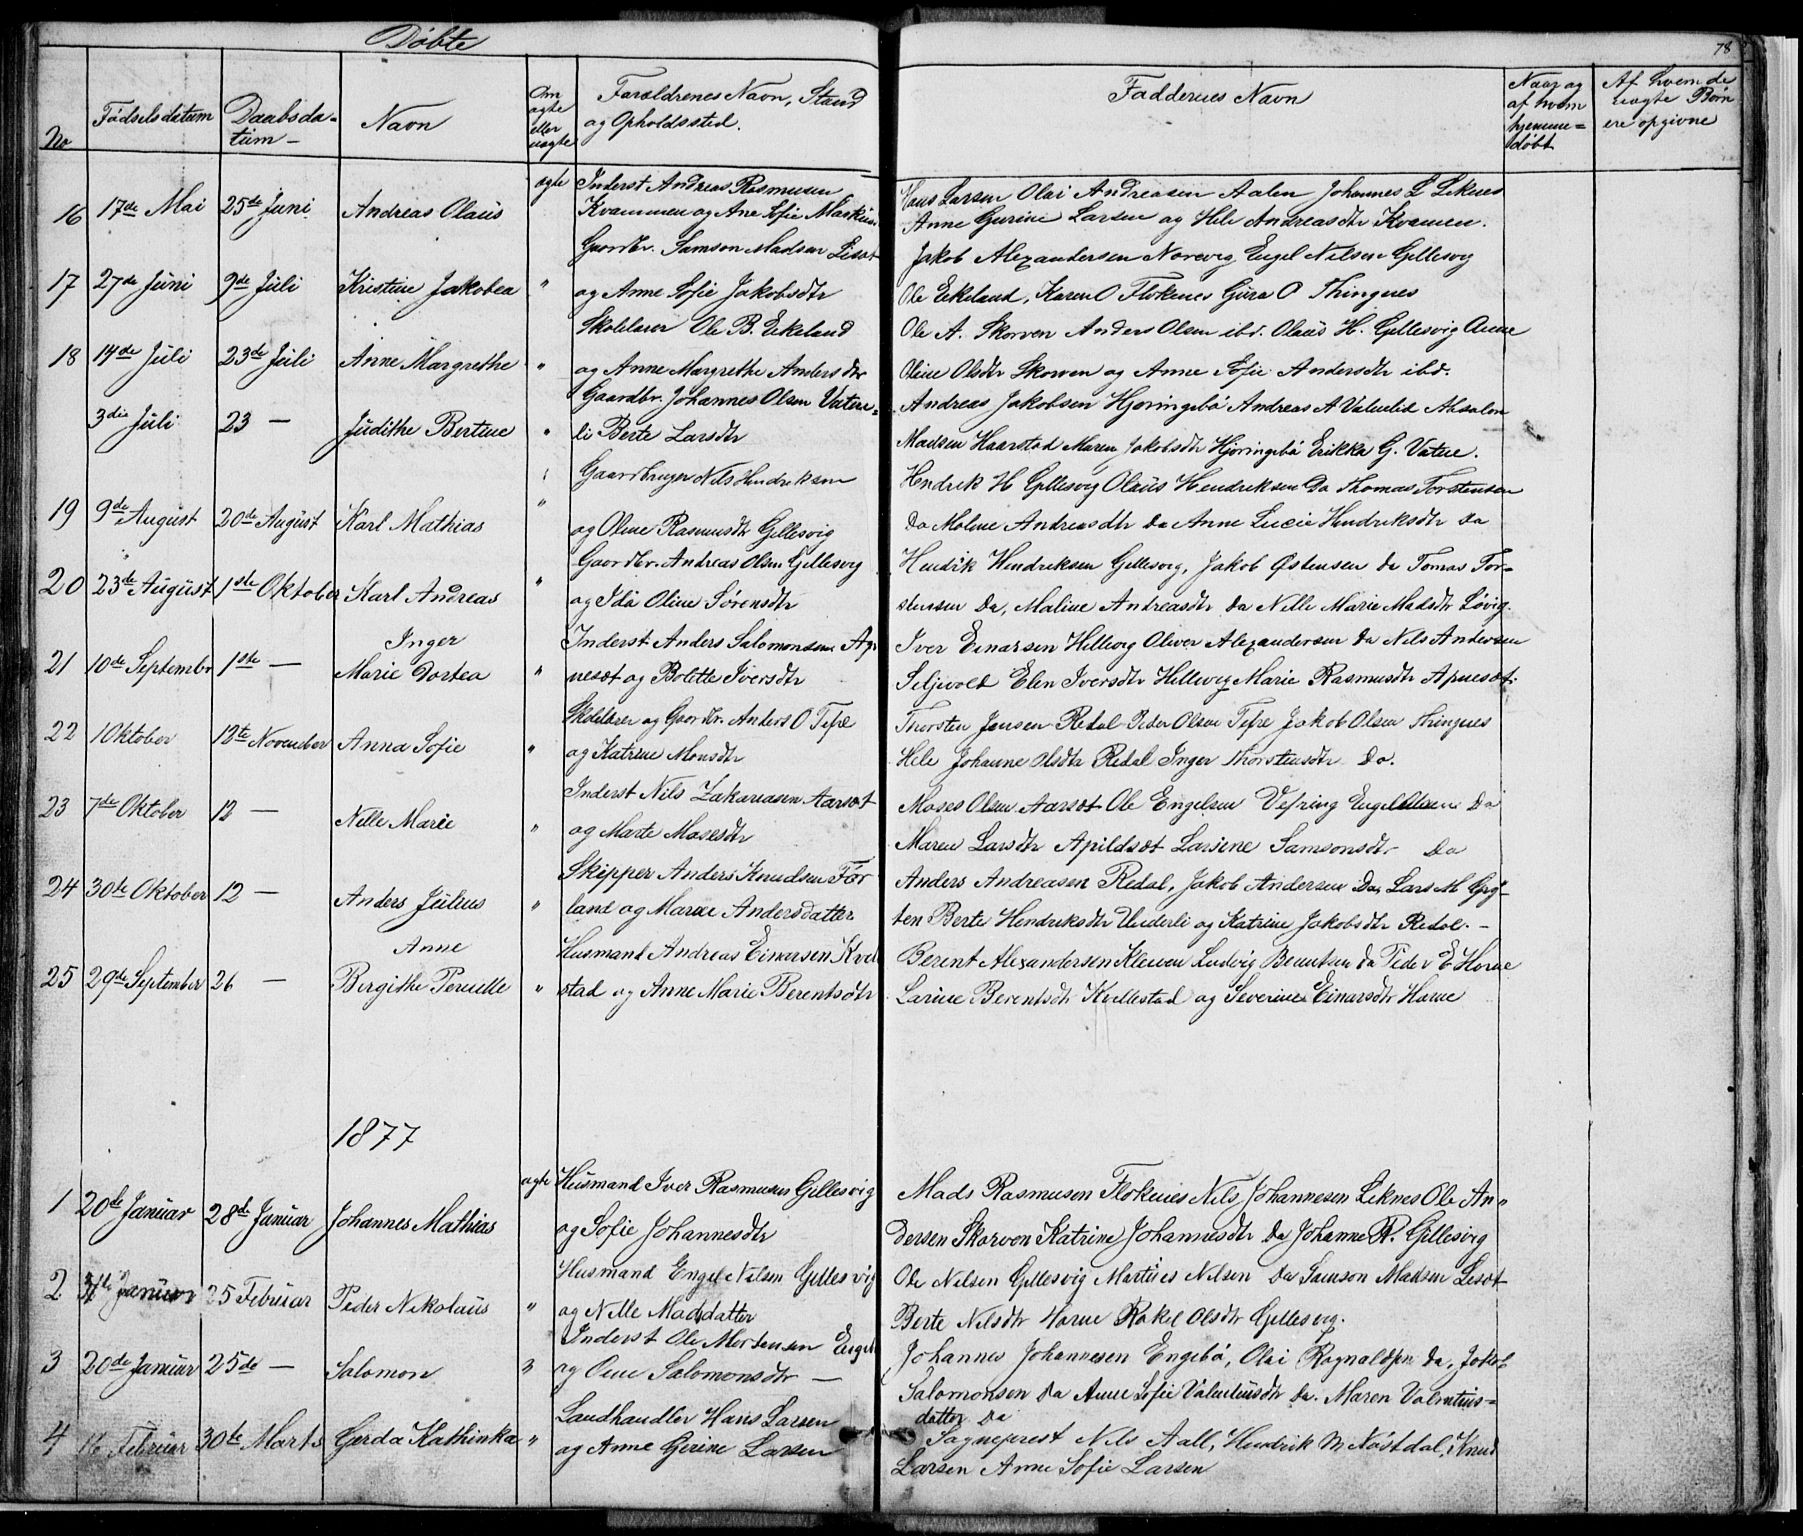 Døbte
78
No
Fødselsdatum
Daabsda-
tum -
Navn
Om
ægte
eller
uægte
Forældrenes Navn, Stand
og Opholdssted.
Faddernes Navn
Naar og
af hvem
hjemme=
døbt
Af hvem de
uægte Børn
ere opgivne
16 17de Mai 25de Juni Andreas Olaus ægte Inderst Andreas Rasmusen
Kvammen og Ane Sofie
Hans Larsen Olai Andreasen Aalen Johannes L Leknes
Anne Gurine Larsen og Hele Andreasdtr Kvamen.
17 27de Juni 9de Juli Kristine Jakobea " Gaardbr. Samson Madsen Lisæt
og Anne Sofie Jakobsdtr
Jakob Alexandersen Norevig Engel Nilsen Gillesvig
Ole Eikeland, Karen O Flokenes Gura O Thingnes
18 14de Juli 23de Juli Anne Margrethe " Skolelærer Ole B. Eikeland
og Anne Margrethe Anders dtr
Ole A. Skorven Anders Olsen ibd. Olaus H. Gillesvig Anne
Oline Olsdtr Skorven og Anne Sofie Andersdtr ibd.
3die Juli 23 - Judithe Bertine " Gaardbr. Johannes Olsen Vatne=
li Berte Larsdtr
Andreas Jakobsen Hjøringsbø Andreas A Vatnelid Absalon
Madsen Haarstad Maren Jakobsdtr Hjøringsbø Erikka G. Vatne.
19 9de August 20de August Karl Mathias " Gaardbruger Nils Hendriksen
og Oline Rasmusdtr Gillesvig
Hendrik H Gillesvig Olaus Hendriksen Do Thomas Torstensen
Do Moline Andreasdtr Do Anne Lucie Hendriksdtr Do
20 23de August 1ste Oktober Karl Andreas " Gaardbr. Andreas Olsen Gillesvig
og Ida Oline Sørensdtr
Hendrik Hendriksen Gillesvig, Jakob Østensen do Tomas Tor=
stensen Do, Maline Andreasdtr Do Nille Marie Madsdtr Løvig.
21 10de Septembr 1ste - Inger
Marie Dortea " Inderst Anders Salomonsen Ap=
nesæt og Bolette Iversdtr
Iver Einarsen Hillevig Oliver Alexandersen Do Nils Andersen
Seljevold Elen Iversdtr Hillevig Marie Rasmusdtr Apnesæt.
22 1 Oktober 12te November Anna Sofie " Skolelærer og Gaardbr. Anders O Tefre
og Katrine Monsdtr
Thorsten Jensen Redal Peder Olsen Tefre Jakob Olsen Thingnes
Hele Johanne Olsdtr Redal Inger Thorstensdtr Do.
23 7de Oktober 12 - Nille Marie " Inderst Nils Zakariasen Aarsæt
og Marte Mosesdtr
Moses Olsen Aarsæt Ole Engelsen Vefring Engel Olsen Do
Maren Larsdtr Apildsæt Larsine Samsonsdtr Do
24 30te Oktober 12 - Anders Julius " Skipper Anders Knudsen Før
land og Maren Andersdatter
Anders Andreasen Redal, Jakob Andersen Do, Lars M Grø=
ten Berte Hendriksdtr Underli og Katrine Jakobsdtr Redal. -
25 29de September 26 - Anne
Birgithe Pernille " Husmand Andreas Einarsen Kvel
stad og Anne Marie Berentsdtr
Berent Alexandersen Kleiven Ludvig Berentsen Do Peder E Horne
Larine Berentsdtr Kvellestad og Severine Einarsdtr Horne
1877
1 20de Januar 28de Januar Johannes Mathias ægte Husmand Iver Rasmusen Gillesvig
og Sofie Johannesdtr
Mads Rasmusen Flokenes Nils Johannesen Leknes Ole An=
dersen Skorven Katrine Johannesdtr Do Johanne R. Gillesvig
2 Januar 25 Februar Peder Nikolaus " Husmand Engel Nilsen Gillesvig
og Nille Madsdatter
Ole Nilsen Gillesvig Martines Nilsen Do Samson Madsen Lisæt
Berte Nilsdtr Horne Rakel Olsdtr Gillesvig.
3 20de Januar 25de - Salomon " Inderst Ole Mortensen Engeb
og Oene Salomonsdtr -
Johannes Johannesen Engebø, Olai Ragnaldsen Do, Jakob
Salomonsen Do Anne Sofie Valentinsdtr Do. Maren Valentins=
datter Do
4 16 Februar 30te Marts Gerda Kathinka " Landhandler Hans Larsen
og Anne Gerine Larsen
Sogneprest Nils Aall, Hendrik M Nøstdal, Knud
Larsen Anne Sofie Larsen